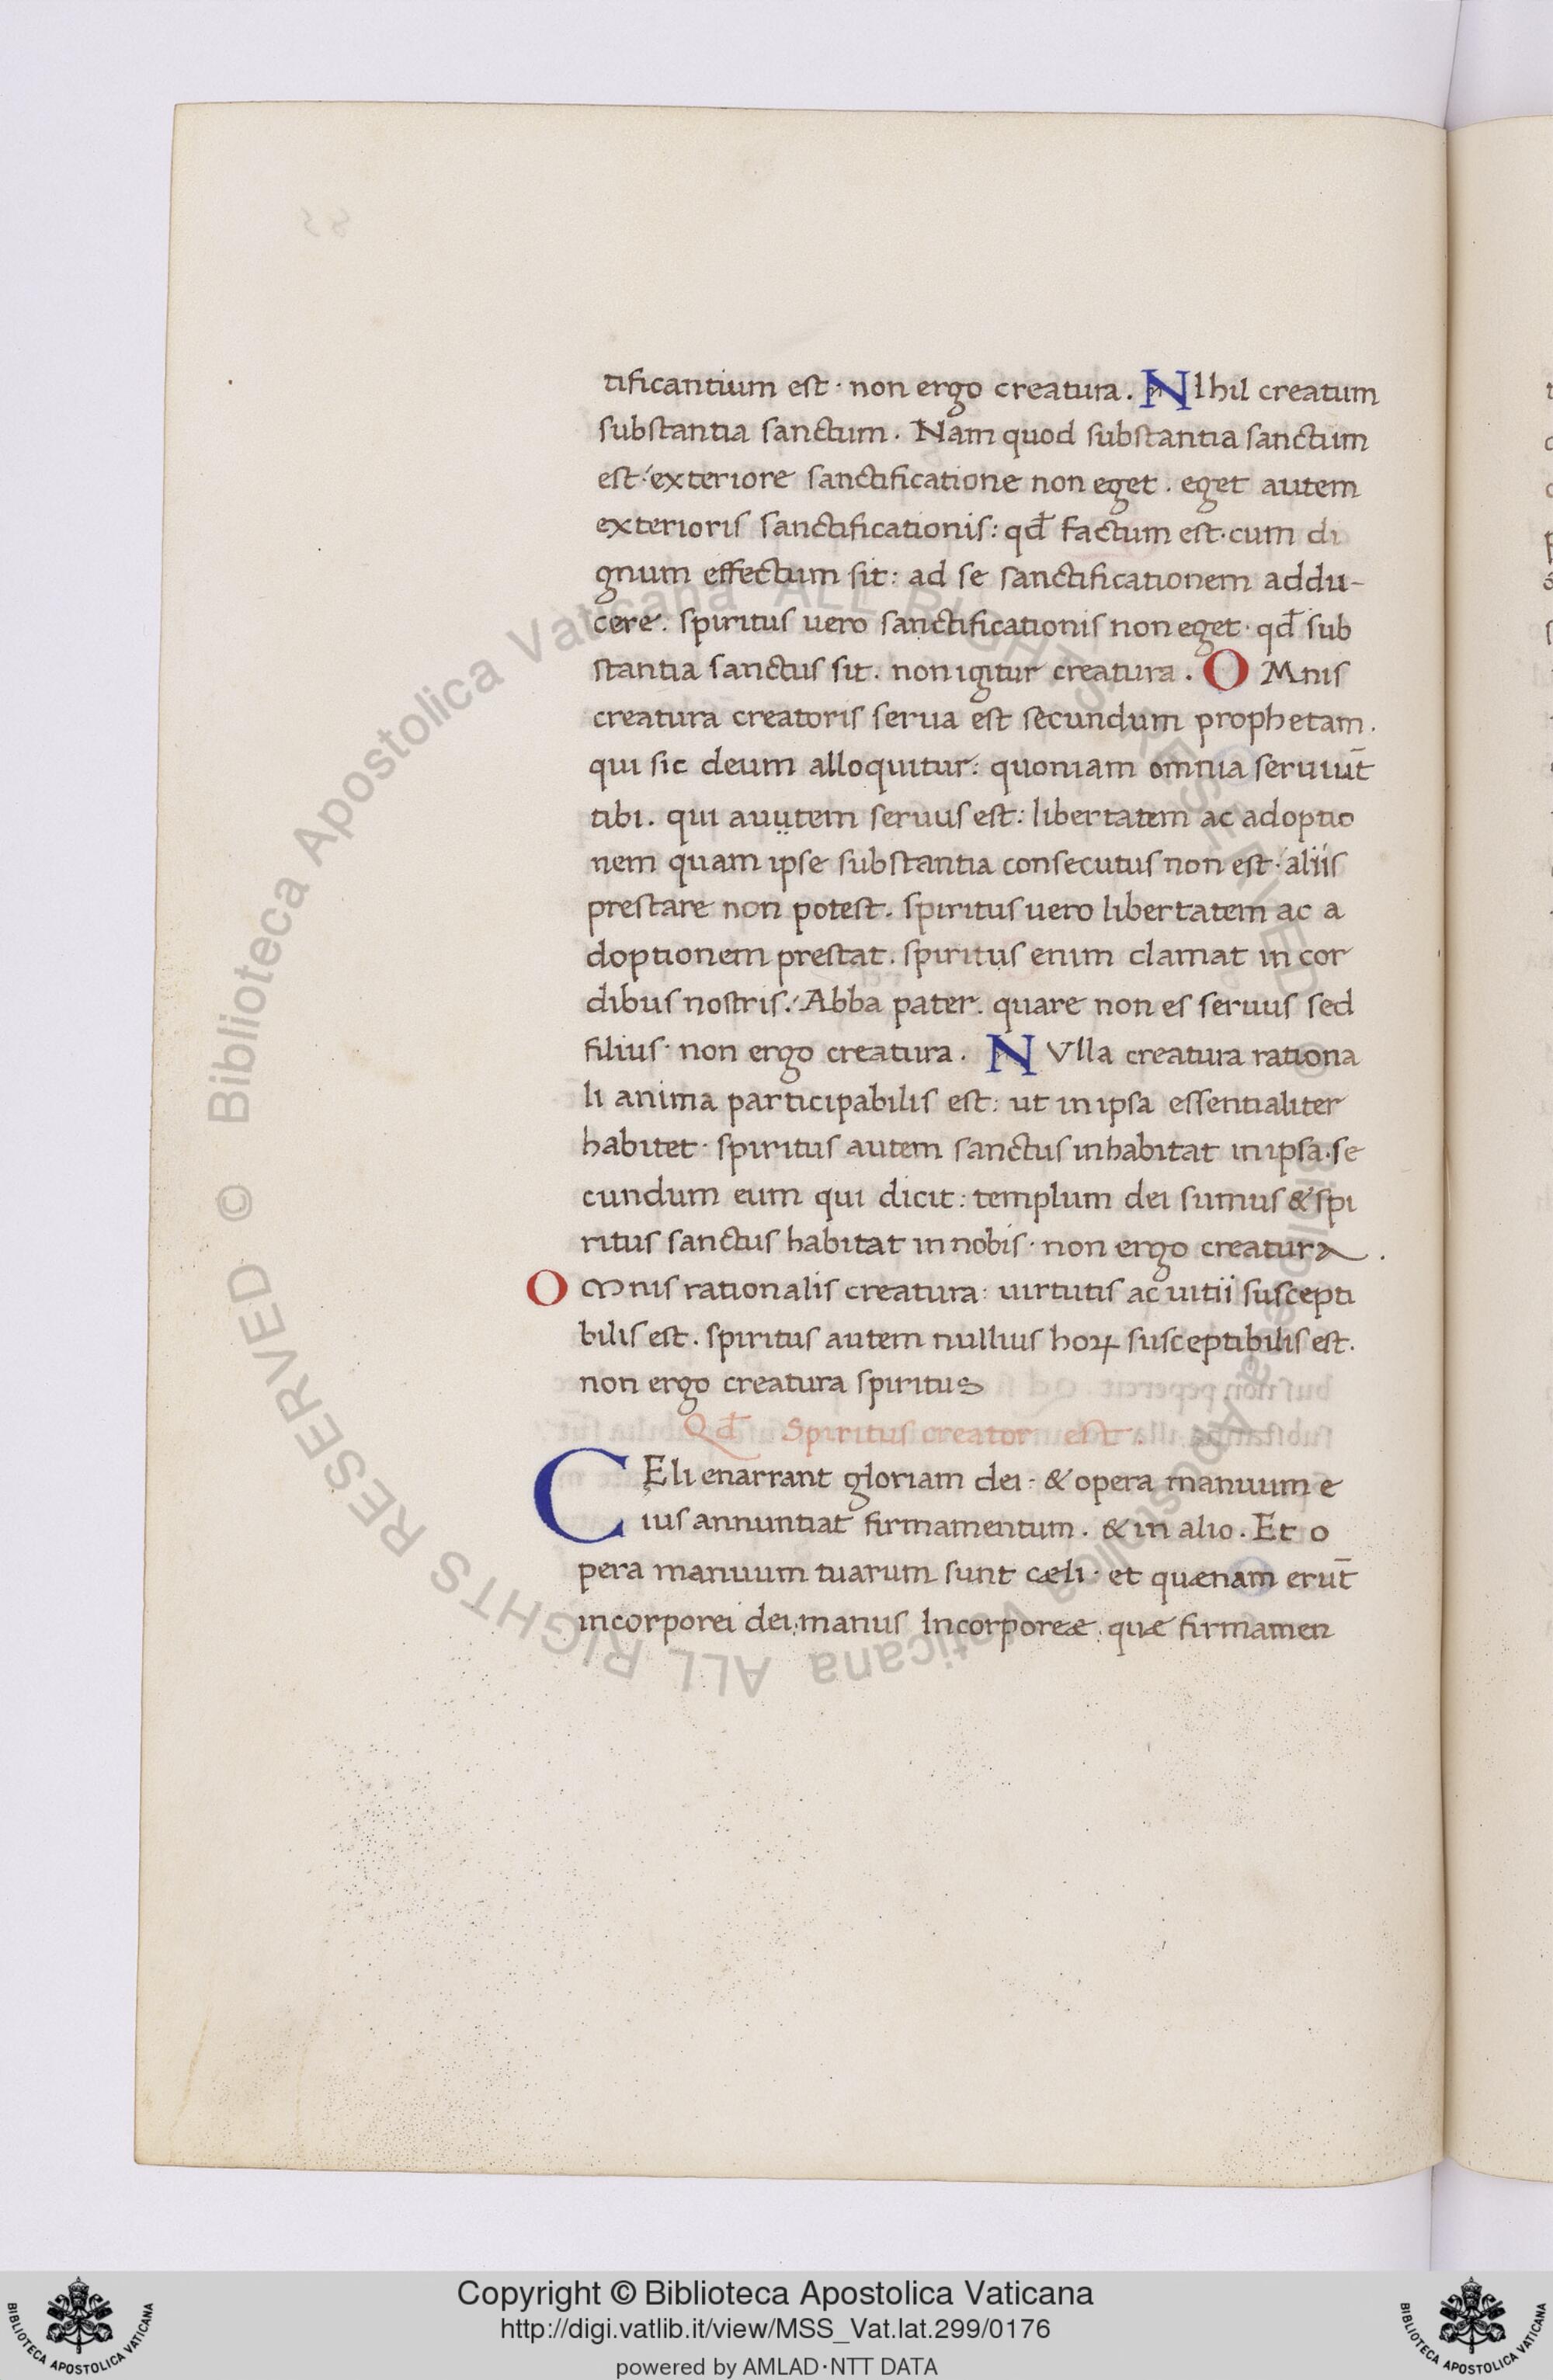 tificantium est · non ergo creatura. NIhil creatum
substantia sanctum. Nam quod substantia sanctum
est· exteriore sanctificatione non eget. eget autem
exterioris sanctificationis: qd̄ factum est· cum di
gnum effectum sit: ad se sanctificationem addu-
cere. spiritus uero sanctificationis non eget· qd̄ sub
stantia sanctus sit. non igitur creatura. OMnis
creatura creatoris serua est secundum prophetam.
qui sic deum alloquitur: quoniam omnia seruiūt
tibi. qui auụtem seruus est: libertatem ac adoptio
nem quam ipse substantia consecutus non est· aliis
prestare non potest. spiritus uero libertatem ac a
doptionem prestat. spiritus enim clamat in cor
dibus nostris. Abba pater. quare non es seruus sed
filius· non ergo creatura. NVlla creatura rationa
li anima participabilis est: ut in ipsa essentialiter
habitet· spiritus autem sanctus inhabitat in ipsa· se
cundum eum qui dicit: templum dei sumus & spi
ritus sanctus habitat in nobis· non ergo creatura.
OMnis rationalis creatura: uirtutis ac uitii suscepti
bilis est. spiritus autem nullius hoꝝ susceptibilis est.
non ergo creatura spiritus
Qd̄ Spiritus creator est.
CEli enarrant gloriam dei· & opera manuum e
ius annuntiat firmamentum. & in alio. Et o
pera manuum tuarum sunt cæli· et quænam erūt
incorporei dei manus Incorporeæ quæ firmamen
Biblioteca Apostolica Vaticana ALL RIGHTS RESERVED ©
Biblioteca Apostolica Vaticana ALL RIGHTS RESERVED ©
Copyright © Biblioteca Apostolica Vaticana
http://digi.vatlib.it/view/MSS_Vat.lat.299/0176
powered by AMLAD·NTT DATA
BIBLIOTECA APOSTOLICA VATICANA
BIBLIOTECA APOSTOLICA VATICANA